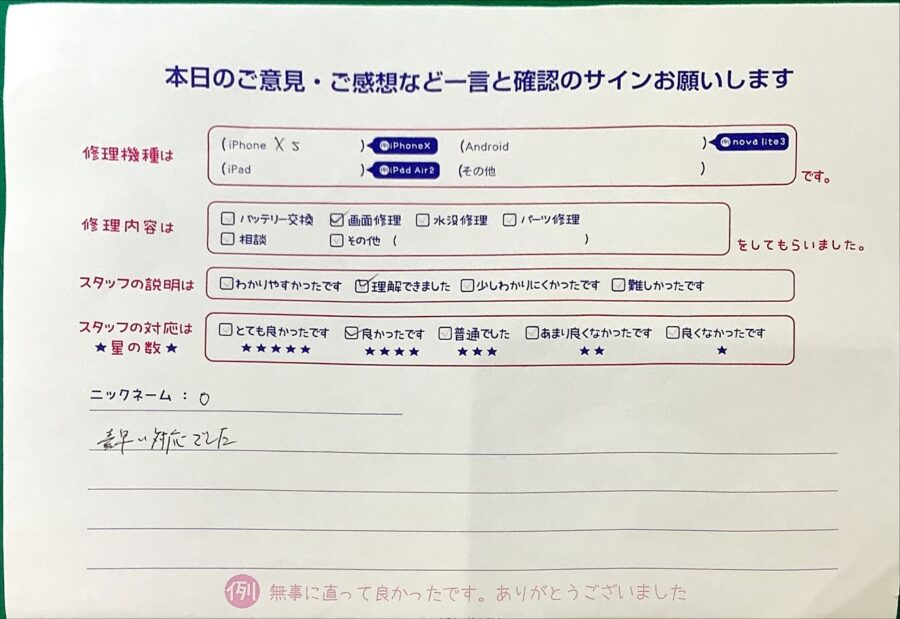 本日のご意見・ご感想など一言と確認のサインお願いします
修理機種は (iPhone XS ) 例iPhoneX (Android ) 例nova lite3
(iPad ) 例iPad Air2 (その他 ) です。
修理内容は □バッテリー交換 ☑画面修理 □水没修理 □パーツ修理
□相談 □その他 ( ) をしてもらいました。
スタッフの説明は □わかりやすかったです ☑理解できました □少しわかりにくかったです □難しかったです
スタッフの対応は □とても良かったです ☑良かったです □普通でした □あまり良くなかったです □良くなかったです
★星の数★ ★★★★★ ★★★★ ★★★ ★★ ★
ニックネーム：O
素早い対応でした
例 無事に直って良かったです。ありがとうございました